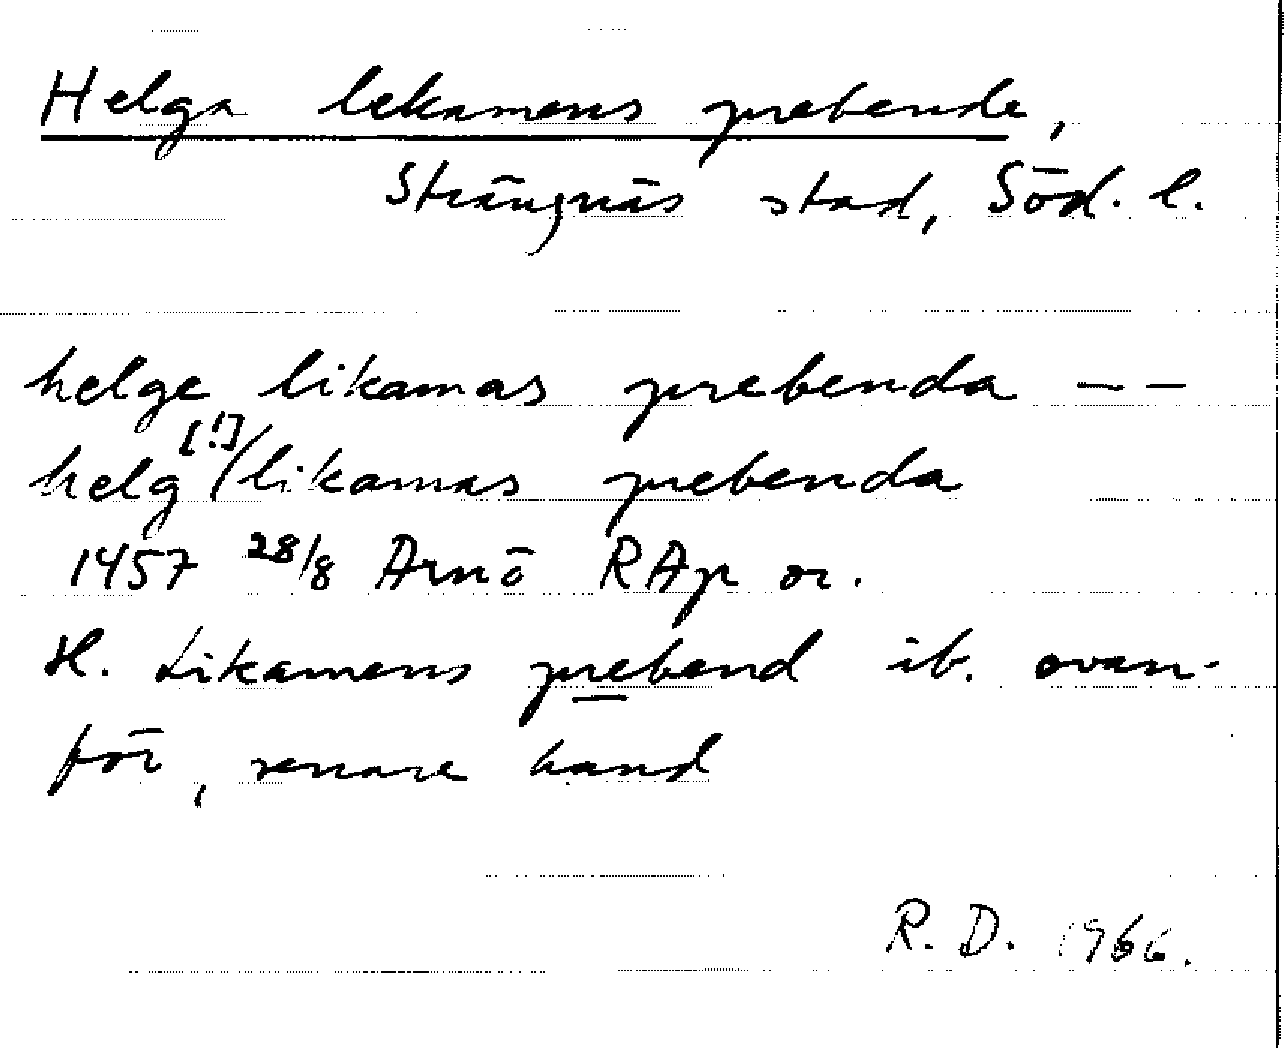 Helga lekamens prebende,
Strängnäs stad, Söd. l.
helge likamas prebenda – –
helg [!] / likamas prebenda
1457 28/8 Arnö RAp or.
H. Likamens prebend ib. ovan-
för, senare hand
R. D. 1966.